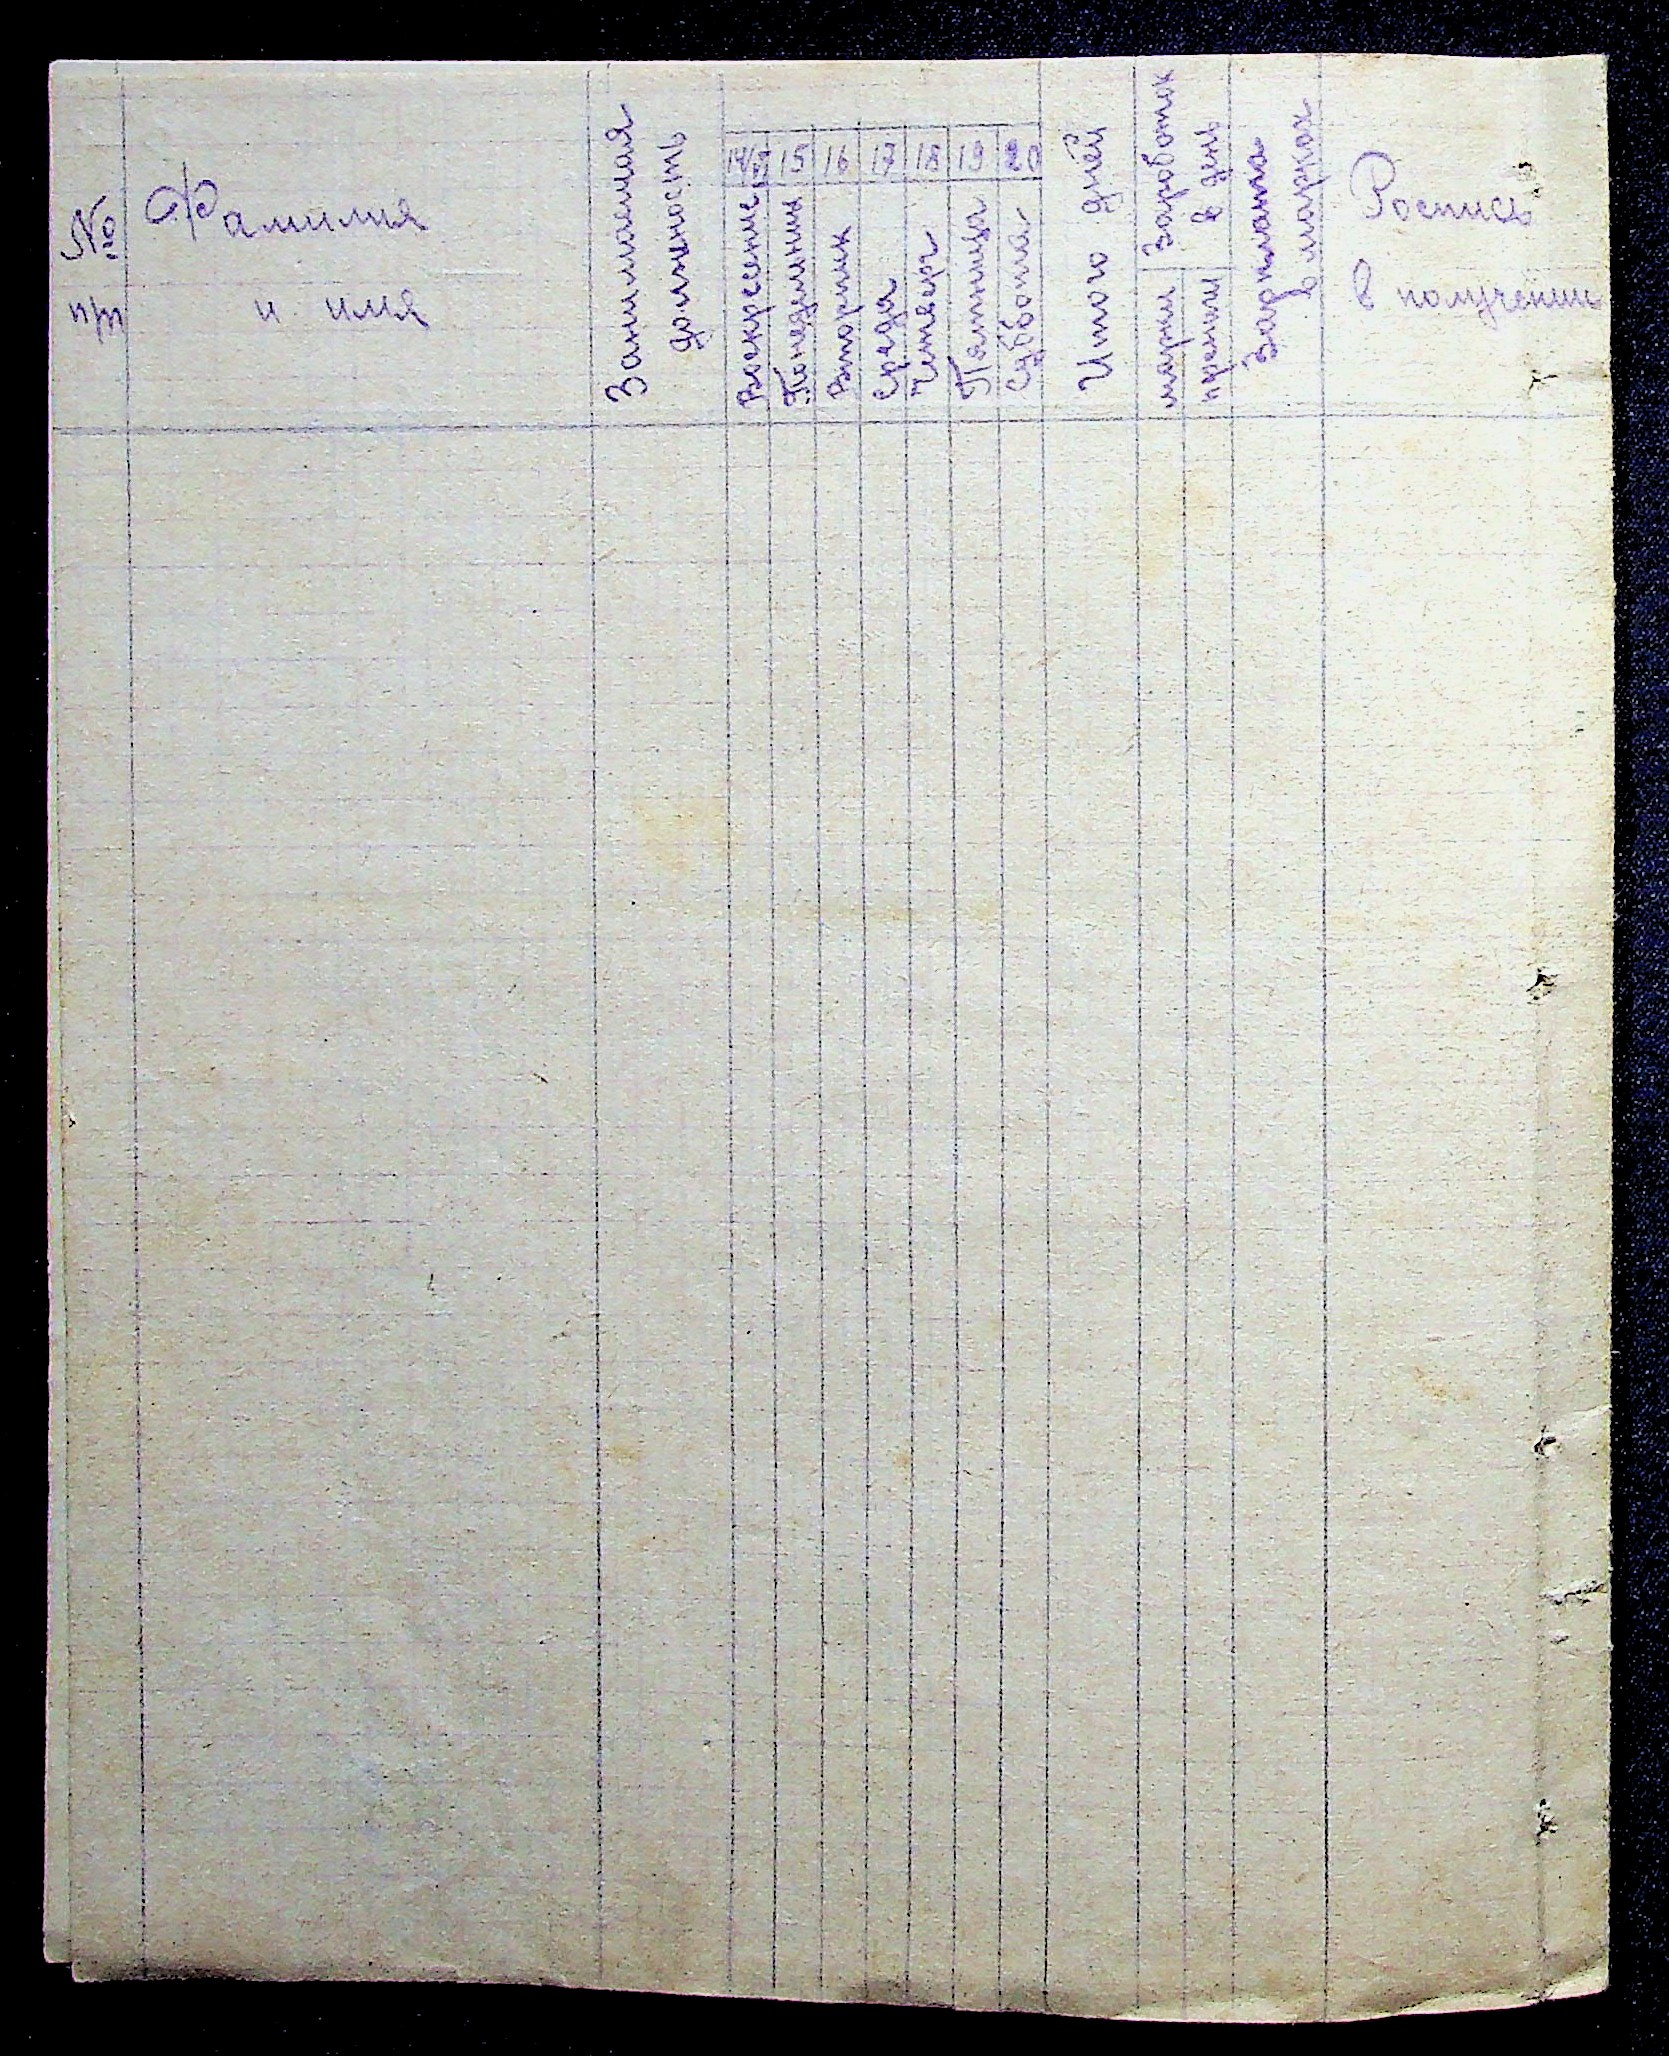 №
п/п
Фамилия
и имя
Занимаемая
должность
14 15 16 17 18 19 20
Воскресение
Понедельник
Вторник
Среда
Четверг
Пятница
Суббота
Итого дней
Заработок
в день
марки
пфениги
Зарплата
в марках
Роспись
в получении